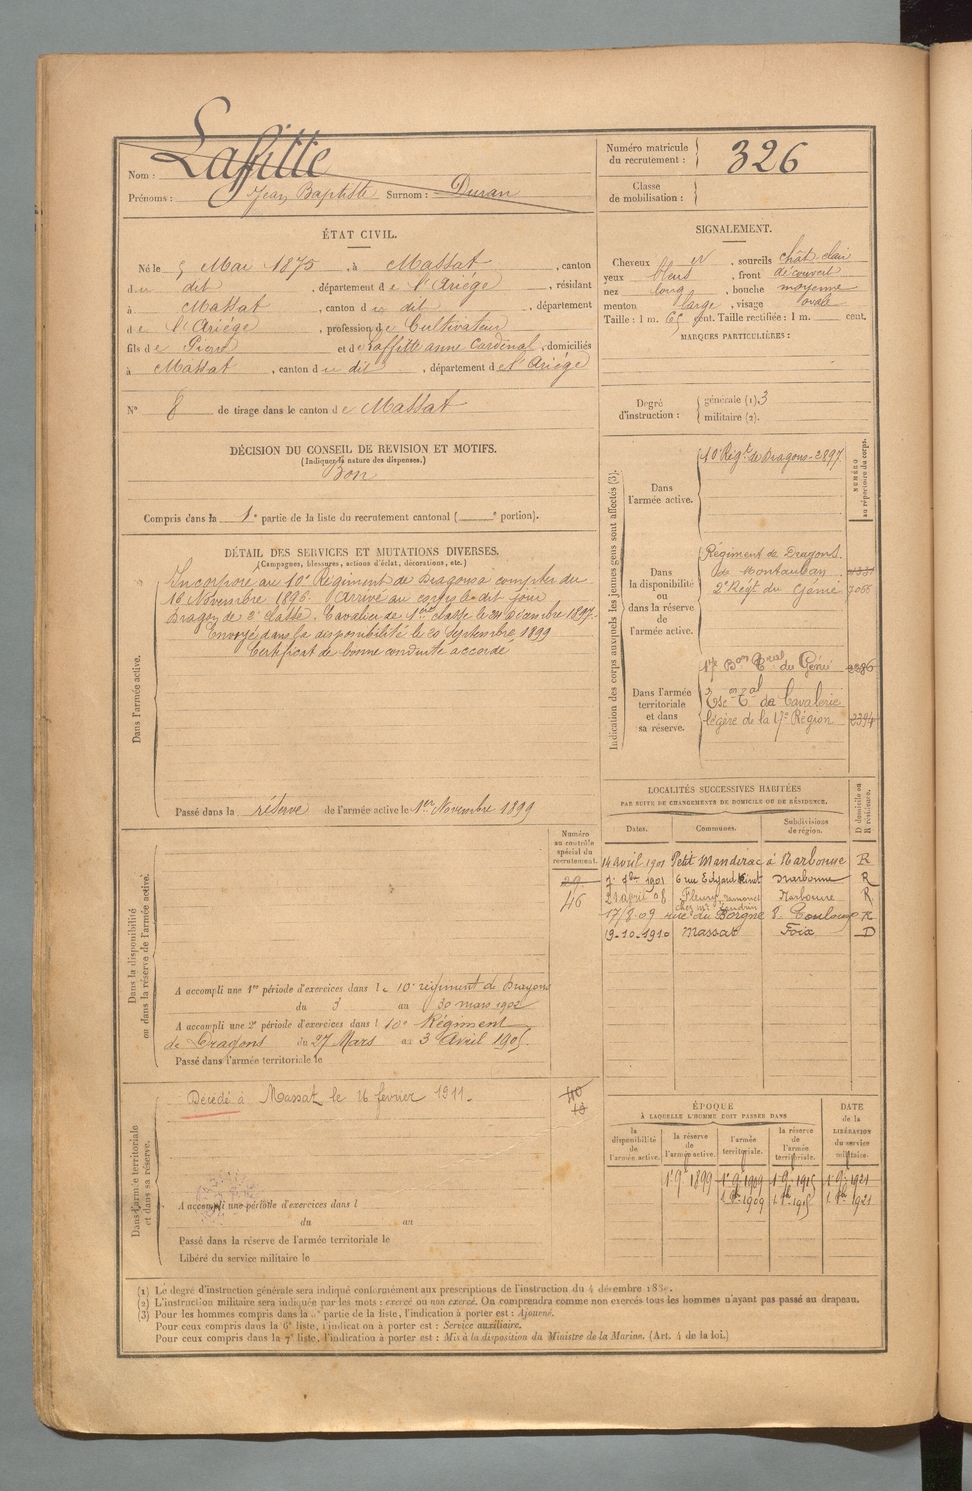 Nom : Laffitte
Prénoms : Jean Baptiste Surnom : Duran
Numéro matricule du recrutement : 326
Classe de mobilisation :
ÉTAT CIVIL.
Né le 5 Mai 1875, à Massat, canton
du dit, département de l'Ariège, résidant
à Massat, canton du dit, département
de l'Ariège, profession de Cultivateur
fils de Pierre et de Laffitte anne Cardenal, domiciliés
à Massat, canton du dit, département de l'Ariège
N° 8 de tirage dans le canton de Massat
SIGNALEMENT.
Cheveux, sourcils chât. clair
yeux bleus, front découvert
nez long, bouche moyenne
menton large, visage ovale
Taille : 1 m. 65 cent. Taille rectifiée : 1 m. cent.
MARQUES PARTICULIÈRES :
Degré d'instruction : générale (1) 3
militaire (2).
DÉCISION DU CONSEIL DE REVISION ET MOTIFS.
(Indiquer la nature des dispenses.)
Bon
Compris dans la 1e partie de la liste du recrutement cantonal ( e portion).
DÉTAIL DES SERVICES ET MUTATIONS DIVERSES.
(Campagnes, blessures, actions d'éclat, décorations, etc.)
Dans l'armée active.
Incorporé au 10e Régiment de Dragons à compter du
16 Novembre 1896. Arrivé au corps le dit jour
Dragon de 2e classe. Cavalier de 1ère classe le 24 Décembre 1897.
Envoyé dans la disponibilité le 20 Septembre 1899
Certificat de bonne conduite accordé
Passé dans la réserve de l'armée active le 1er Novembre 1899
Indication des corps auxquels les jeunes gens sont affectés (3).
NUMÉRO au répertoire du corps.
Dans l'armée active.
10e Régt de Dragons - 2897
Dans la disponibilité ou dans la réserve de l'armée active.
Régiment de Dragons
de Montauban
2e Régt du Génie 7066
Dans l'armée territoriale et dans sa réserve.
17e Bon Tral du Génie 2286
Esc on Tal de Cavalerie
légère de la 17e Région 2394
LOCALITÉS SUCCESSIVES HABITÉES
PAR SUITE DE CHANGEMENTS DE DOMICILE OU DE RÉSIDENCE.
D domicile ou R résidence.
Dates. Communes. Subdivisions de région.
14 avril 1901 Petit Mandirac à Narbonne R
7bre 1901 6 rue Edgard Quinet Narbonne R
21 avril 08 Fleury Narbonne R
17/8.09 rue du Borgne 8 Toulouse R
19-10-1910 Massat Foix D
Numéro au contrôle spécial du recrutement.
29
46
Dans la disponibilité ou dans la réserve de l'armée active.
A accompli une 1re période d'exercices dans le 10e régiment de Dragons
du 3 au 30 mars 1902
A accompli une 2e période d'exercices dans l 10e Régiment
de Dragons du 27 Mars au 3 Avril 1905.
Passé dans l'armée territoriale le
Dans l'armée territoriale et dans sa réserve.
Décédé à Massat le 16 février 1911.
A accompli une période d'exercices dans l
du au
Passé dans la réserve de l'armée territoriale le
Libéré du service militaire le
ÉPOQUE
À LAQUELLE L'HOMME DOIT PASSER DANS
DATE de la LIBÉRATION du service militaire.
la disponibilité de l'armée active. la réserve de l'armée active. l'armée territoriale. la réserve de l'armée territoriale.
1. 9. 1899 1. 9. 1909 1. 9. 1915 1. 9. 1921
1. 8bre 1909 1. 8bre 1915 1. 8bre 1921
(1) Le degré d'instruction générale sera indiqué conformément aux prescriptions de l'instruction du 4 décembre
(2) L'instruction militaire sera indiquée par les mots : exercé ou non exercé. On comprendra comme non exercés tous les hommes n'ayant pas passé au drapeau.
(3) Pour les hommes compris dans la partie de la liste, l'indication à porter est : Ajourné.
Pour ceux compris dans la 6e liste, l'indication à porter est : Service auxiliaire.
Pour ceux compris dans la 7e liste, l'indication à porter est : Mis à la disposition du Ministre de la Marine. (Art. 4 de la loi.)